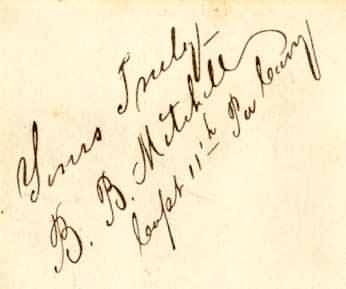 Yours Truly
B. B. Mitchell
Capt 11th Pa Cavy